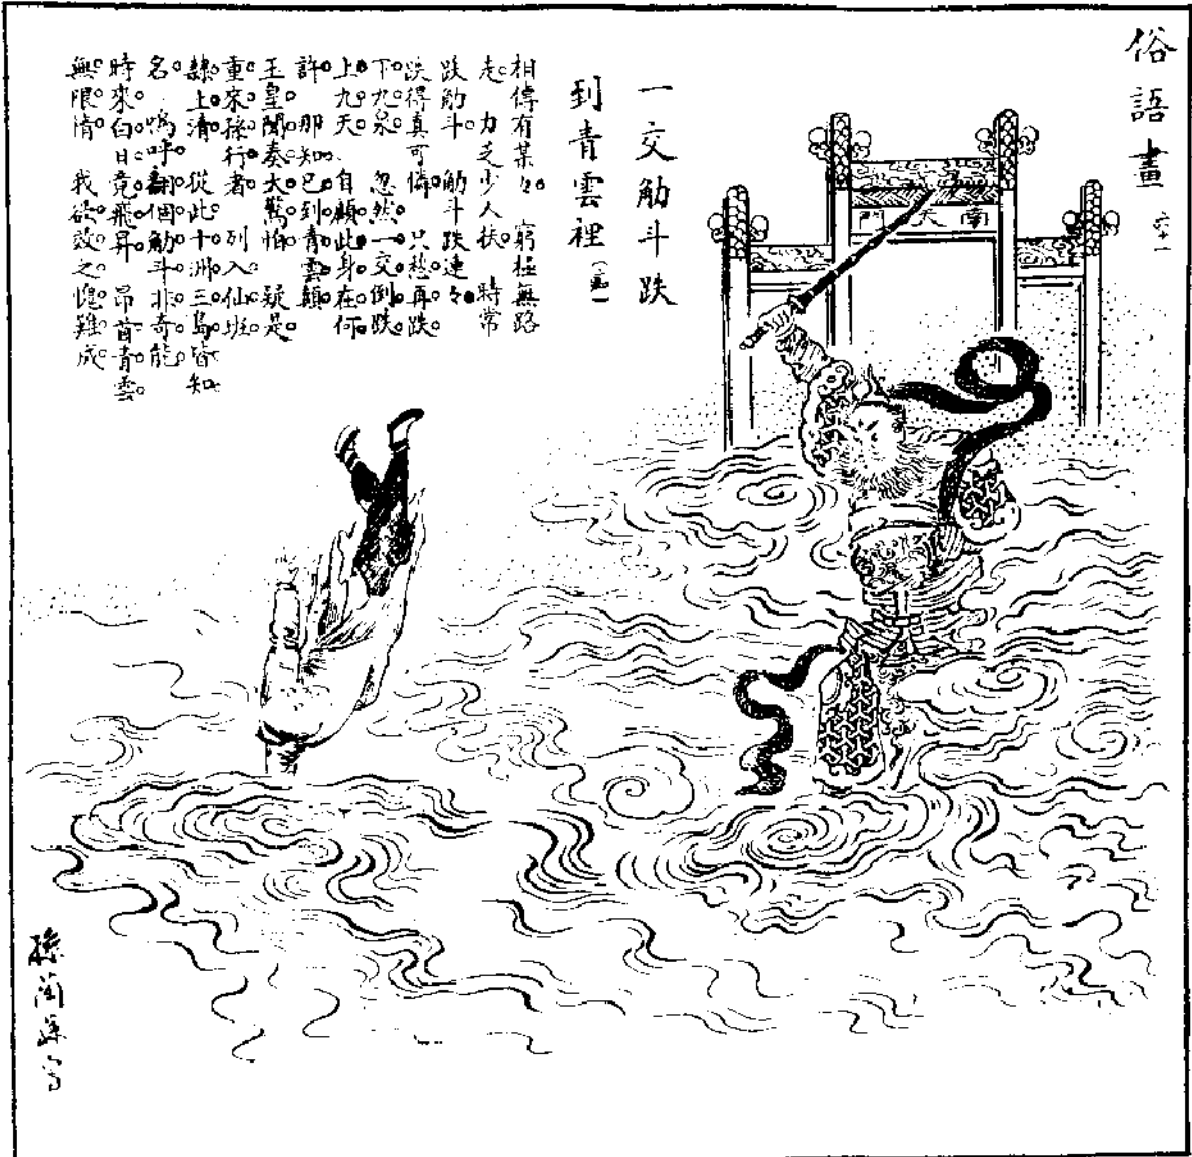 俗語畫 六十一
南天門
一交觔斗跌
到青雲裡
相傳有某々。窮極無路
走。力乏少人扶。時常
跌觔斗。觔斗跌連々。
跌得真可憐。只愁再跌
下九泉。忽然一交倒跌
上九天。自顧此身在何
許。那知已到青雲顛
玉皇聞奏大驚怕。疑是
重來孫行者。列入仙班
隸上清。從此十洲三島皆知
名。嗚呼翻個觔斗非奇能
時來白日竟飛昇。昂首青雲
無限情。我欲效之愧難成
孫蘭蓀寫